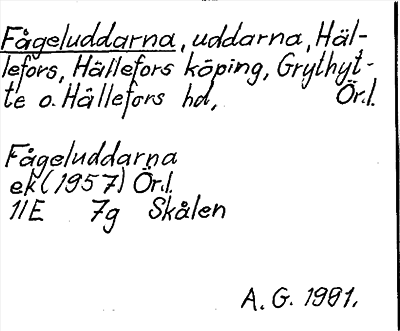 Fågeluddarna, uddarna, Häl-
lefors, Hällefors köping, Grythyt-
te o. Hällefors hd, Ör.l.
Fågeluddarna
ek (1957) Ör.l.
11E 7g Skålen
A. G. 1991.